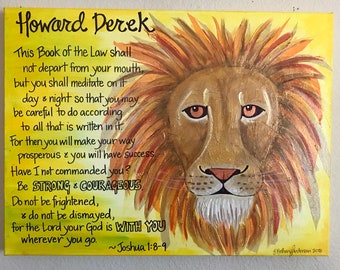 Howard Derek,
This Book of the Law shall
not depart from your mouth,
but you shall meditate on it
day & night so that you may
be careful to do according
to all that is written in it.
For then you will make your way
prosperous & you will have success.
Have I not commanded you?
Be STRONG & COURAGEOUS.
Do not be frightened,
& do not be dismayed,
for the Lord your God is WITH YOU
wherever you go.
~Joshua 1:8-9